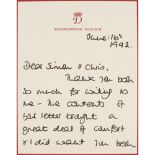 KENSINGTON PALACE
June: 16th
1992.
Dear Simon & Chris,
Thank you both
so much for writing to
me - the contents of
your letter brought a
great deal of comfort
& I did want you both